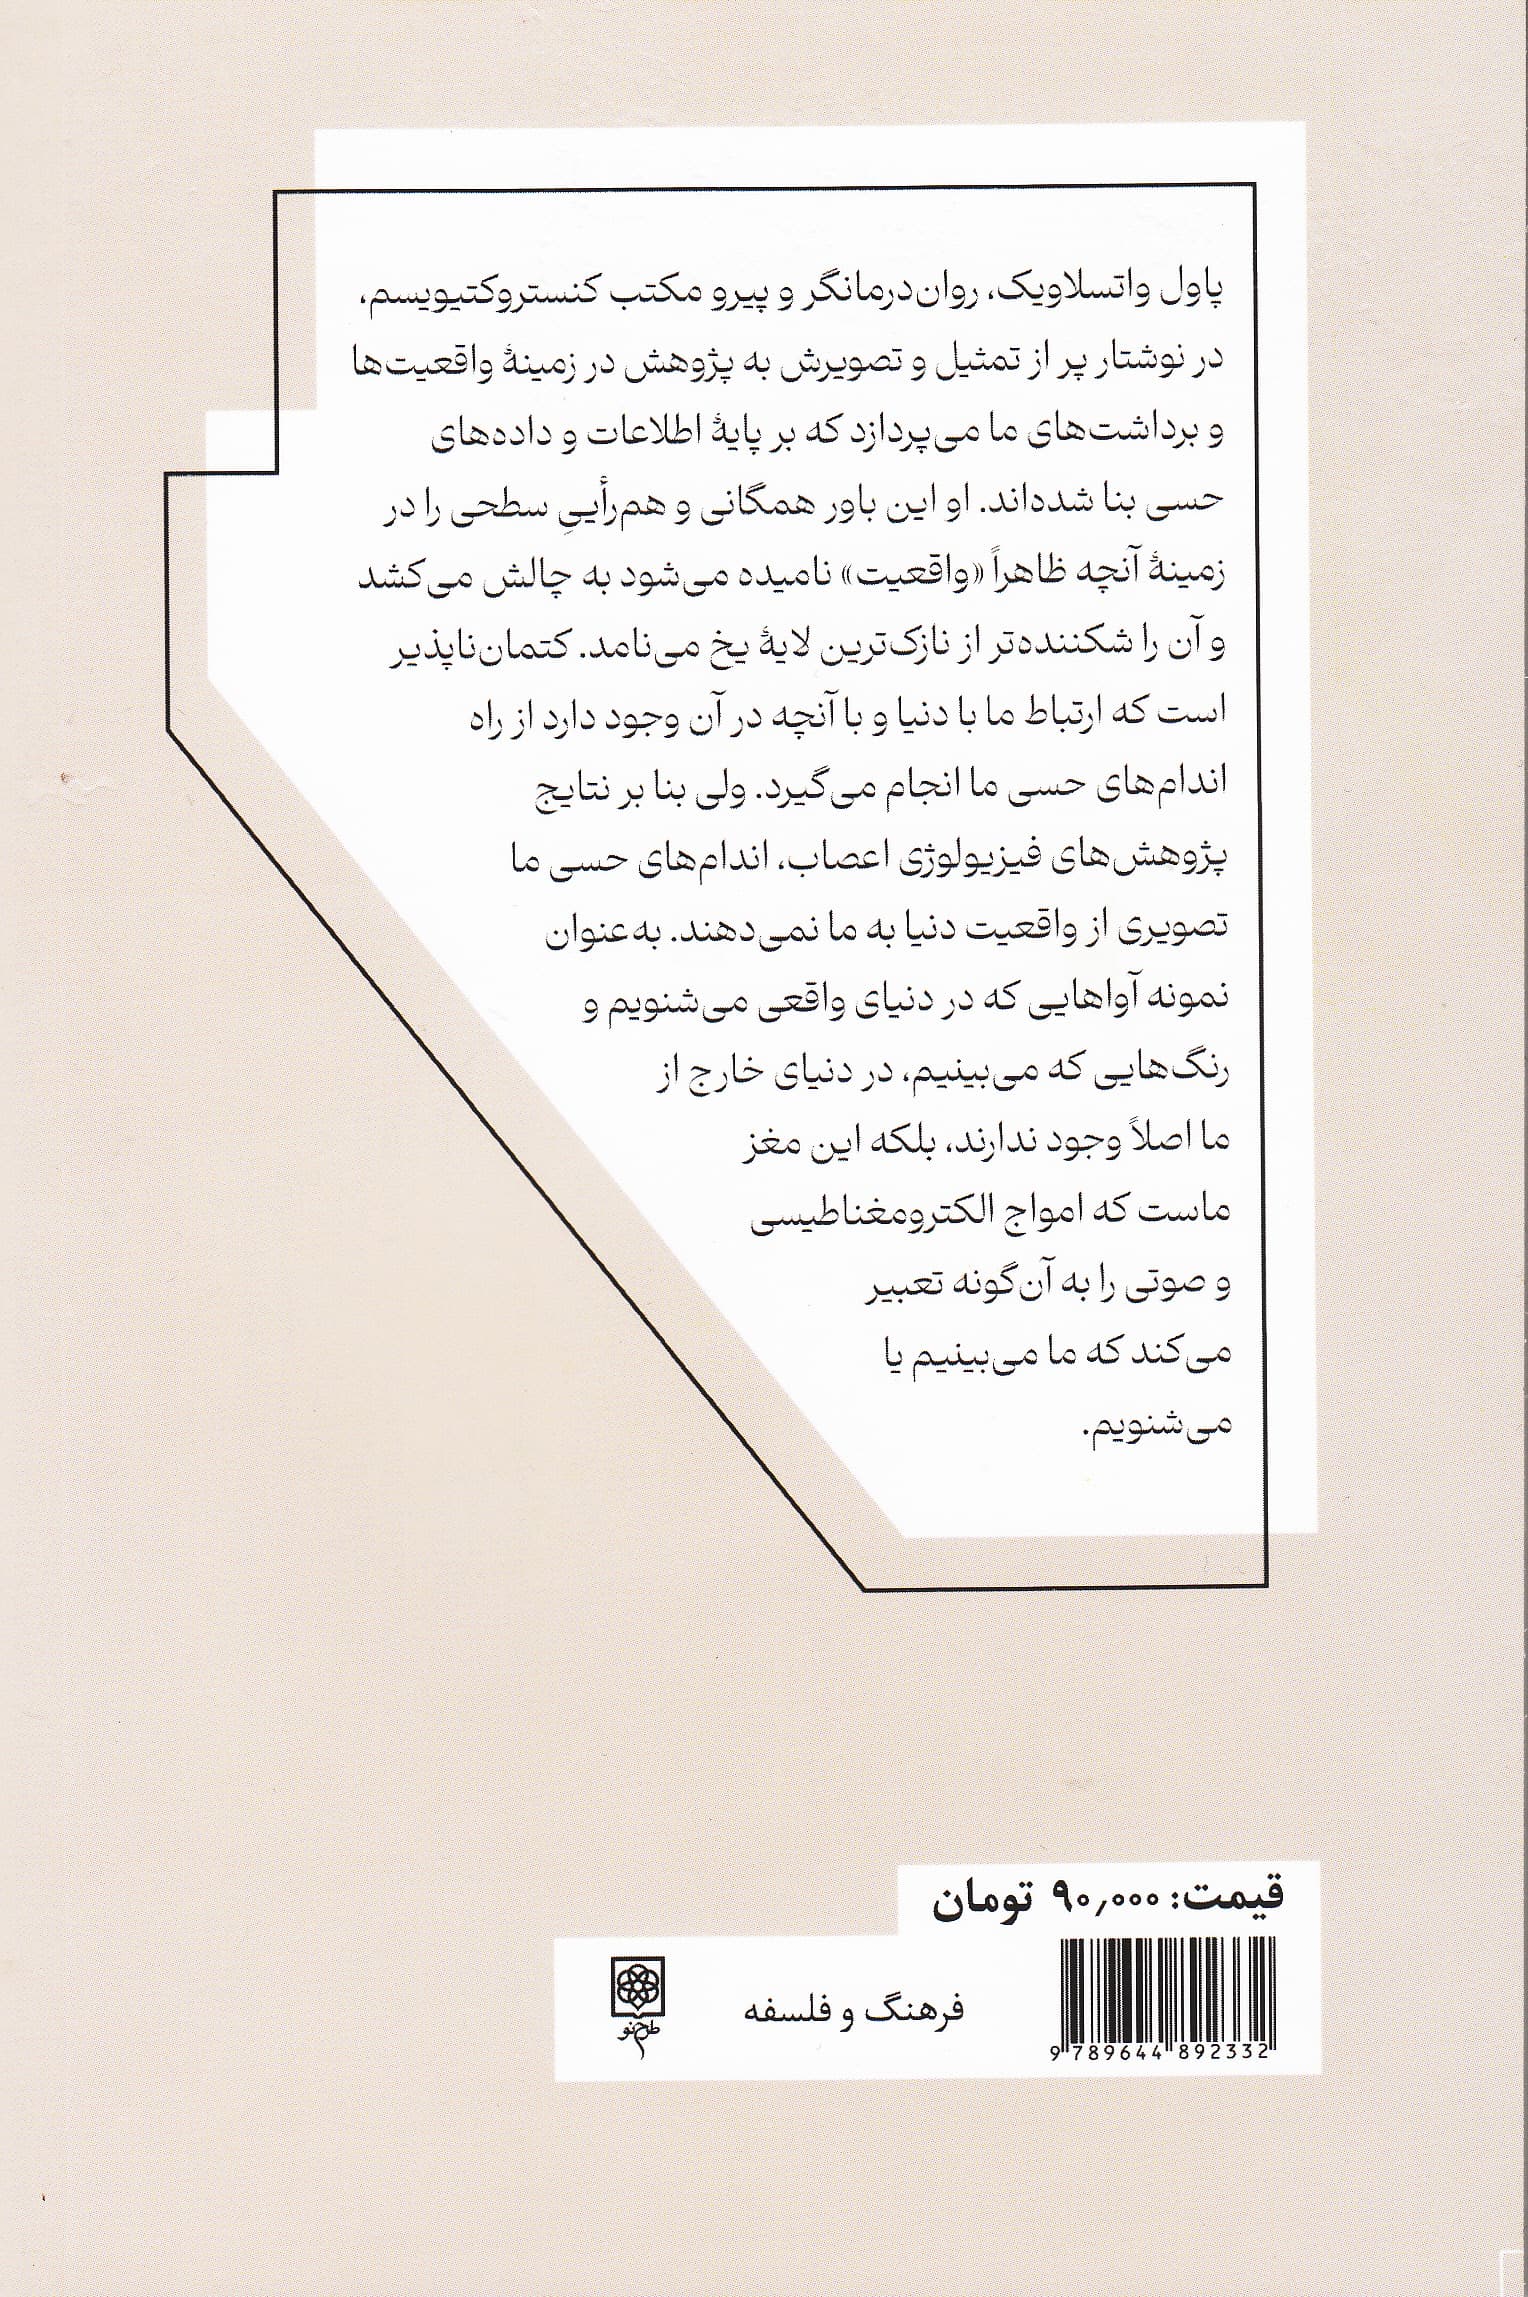 پاول واتسلاویک، روان‌درمانگر و پیرو مکتب کنستروکتیویسم،
در نوشتار پر از تمثیل و تصویرش به پژوهش در زمینهٔ واقعیت‌ها
و برداشت‌های ما می‌پردازد که بر پایهٔ اطلاعات و داده‌های
حسی بنا شده‌اند. او این باور همگانی و هم‌رأییِ سطحی را در
زمینهٔ آنچه ظاهراً «واقعیت» نامیده می‌شود به چالش می‌کشد
و آن را شکننده‌تر از نازک‌ترین لایهٔ یخ می‌نامد. کتمان‌ناپذیر
است که ارتباط ما با دنیا و با آنچه در آن وجود دارد از راه
اندام‌های حسی ما انجام می‌گیرد. ولی بنا بر نتایج
پژوهش‌های فیزیولوژی اعصاب، اندام‌های حسی ما
تصویری از واقعیت دنیا به ما نمی‌دهند. به‌عنوان
نمونه آواهایی که در دنیای واقعی می‌شنویم و
رنگ‌هایی که می‌بینیم، در دنیای خارج از
ما اصلاً وجود ندارند، بلکه این مغز
ماست که امواج الکترومغناطیسی
و صوتی را به آن‌گونه تعبیر
می‌کند که ما می‌بینیم یا
می‌شنویم.
قیمت: ۹۰٫۰۰۰ تومان
فرهنگ و فلسفه
طرح نو
9 789644 892332